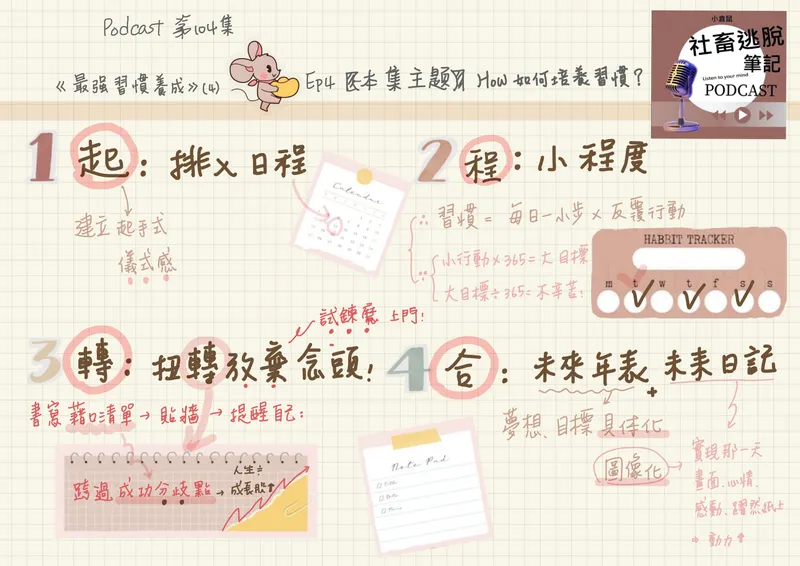 Podcast 第104集
小倉鼠
社畜逃脫
筆記
Listen to your mind
PODCAST
《最強習慣養成》(4)
Ep4 医本集主題 How 如何培養習慣?
1 起:排入日程
建立起手式
儀式感
Calendar
2 程:小程度
∵ 習慣 = 每日一小步 x 反覆行動
∴ 小行動×365=大目標
大目標÷365=不辛苦!
HABBIT TRACKER
m t w t f s s
3 轉:扭轉放棄念頭!
試鍊魔上門!
書寫藉口清單→貼牆→提醒自己:
跨過成功分歧點→成長股↑
人生之
4 合:未來年表+未來日記
夢想、目標具体化
圖像化
實現那一天
畫面、心情、
感動、躍然紙上
⇒ 動力↑
Note Pad